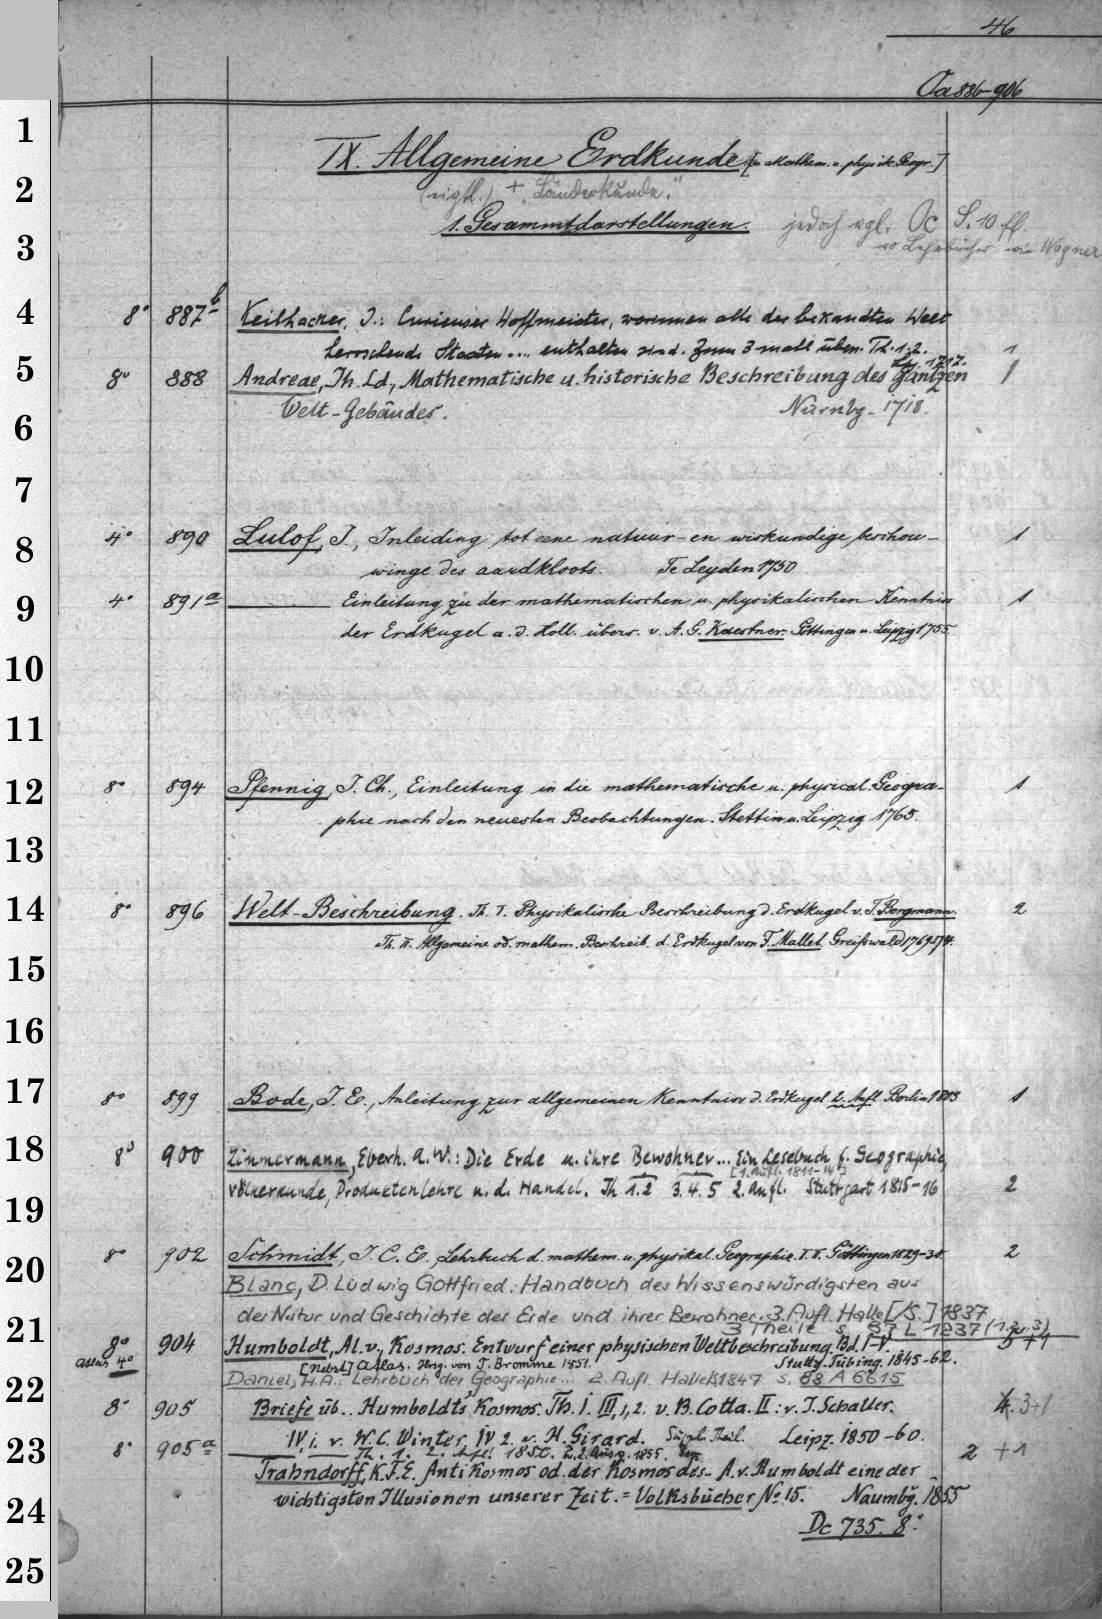 46
Oa 886-906
IX. Allgemeine Erdkunde [u. Mathem. u. physik. Geogr.]
(eigtl.) + "Länderkunde."
1. Gesammtdarstellungen. jedoch vgl. Oc S. 10 ff.
wo Lehrbücher wie Wagner
8° 887 b Keilhacker, J.: Curieuser Hoffmeister, worinnen alle der bekandten Welt
herrschende Staaten ... enthalten sind. Zum 3 mall übers. Th. 1. 2. 1
Lpz. 1717.
8° 888 Andreae, Th. Ld., Mathematische u. historische Beschreibung des gantzen 1
Welt-Gebäudes. Nürnbg. 1718.
4° 890 Lulof, J., Inleiding tot eene natuur- en wiskundige beschou- 1
winge des aardkloots. Te Leyden 1750
4° 891 a ——— Einleitung zu der mathematischen u. physikalischen Kenntniss 1
der Erdkugel a. d. Holl. übers. v. A. G. Kaestner. Göttingen u. Leipzig 1755.
8° 894 Pfennig, J. Ch., Einleitung in die mathematische u. physical. Geogra- 1
phie nach den neuesten Beobachtungen. Stettin u. Leipzig 1765.
8° 896 Welt-Beschreibung. Th. I. Physikalische Beschreibung d. Erdkugel v. T. Bergmann. 2
Th. II. Allgemeine od. mathem. Beschreib. d. Erdkugel von F. Mallet. Greifswald 1769 74.
8° 899 Bode, J. E., Anleitung zur allgemeinen Kenntniss d. Erdkugel 2. Aufl. Berlin 1803 1
8° 900 Zimmermann, Eberh. A. W.: Die Erde u. ihre Bewohner... Ein Lesebuch f. Geographie,
[1. Aufl. 1811-14]
Völkerkunde, Produktenlehre u. d. Handel. Th 1. 2 3. 4. 5 2. Aufl. Stuttgart 1815-16 2
8° 902 Schmidt, J. C. E. Lehrbuch d. mathem. u. physikal. Geographie. I. II. Göttingen 1829-30. 2
Blanc, D. Ludwig Gottfried: Handbuch des Wissenswürdigsten aus
der Natur und Geschichte der Erde und ihrer Bewohner. 3. Aufl. Halle [/S.] 1837
3 Theile s. 37 L 1237 (1. 2. 3)
8° 904 Humboldt, Al. v., Kosmos. Entwurf einer physischen Weltbeschreibung. Bd. I-V. 5 + 1
Atlas 4° [Nebst] Atlas. Hrsg. von T. Bromme 1851. Stuttg. Tübing. 1845-62.
Daniel, H. A.: Lehrbuch der Geographie... 2. Aufl. Halle/S 1847 s. 88 A 6615
8° 905 Briefe üb. Humboldt's Kosmos. Th. I. III, 1, 2. v. B. Cotta. II: v. J. Schaller. 4. 3+1
IV, 1. v. W. C. Winter, IV 2. v. H. Girard. Leipz. 1850-60.
8° 905 a ——— ——— Th. 1. 2. Aufl. 1850. 2, 2. Ausg. 1855. 2 + 1
Trahndorff, K. F. E. AntiKosmos od. der Kosmos des A. v. Humboldt eine der
wichtigsten Illusionen unserer Zeit. = Volksbücher No 15. Naumbg. 1855
Dc 735. 8°.
1
2
3
4
5
6
7
8
9
10
11
12
13
14
15
16
17
18
19
20
21
22
23
24
25